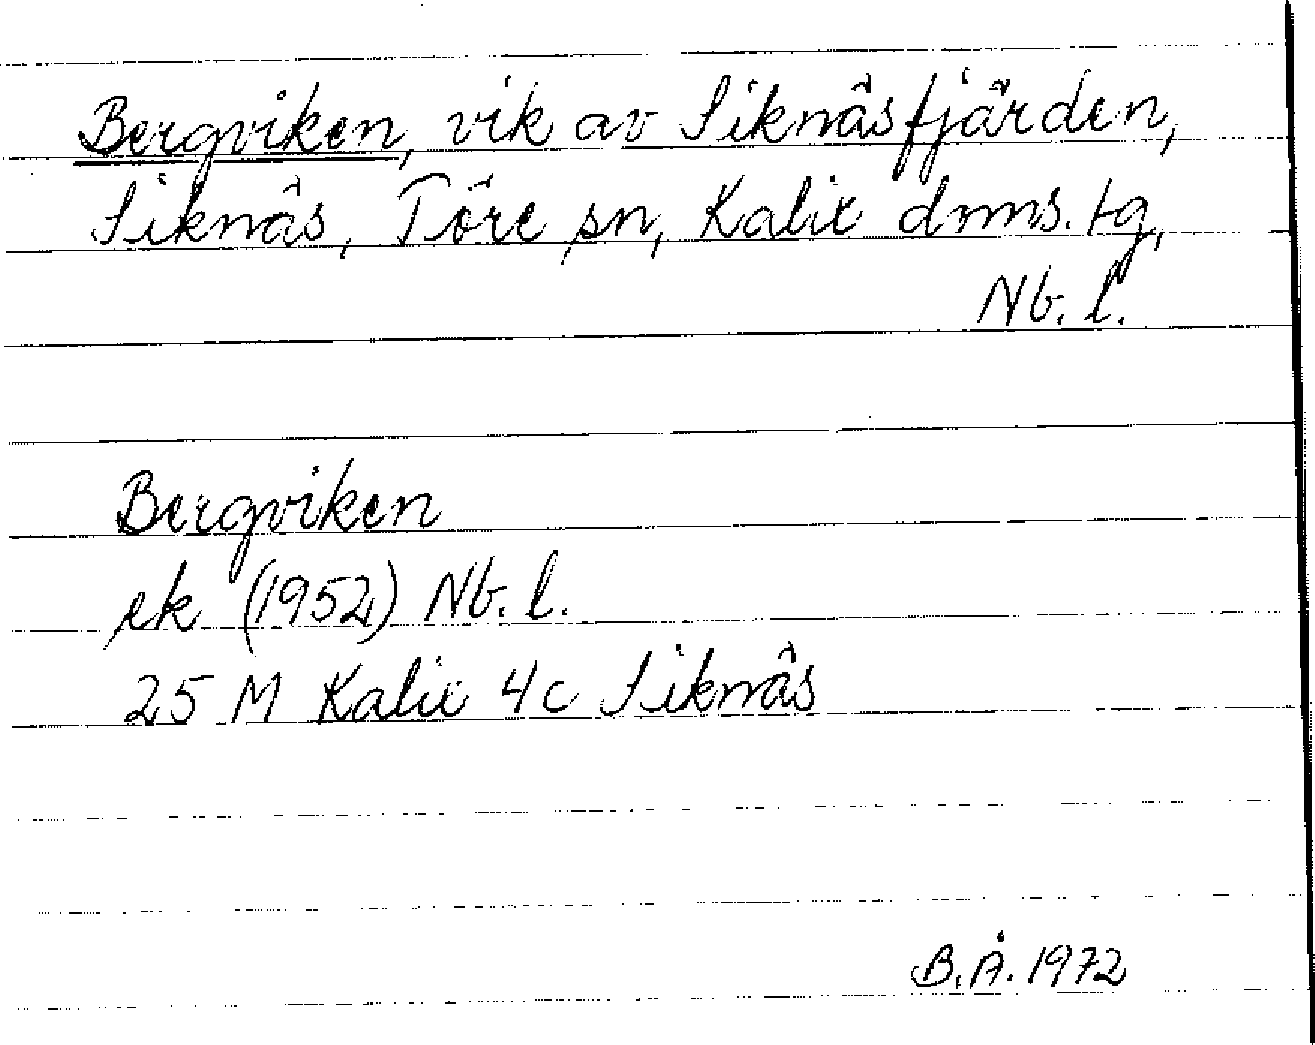 Bergviken, vik av Siknäsfjärden,
Siknäs, Töre sn, Kalix dmns. tg,
Nb. l.
Bergviken
ek (1952) Nb. l.
25 M Kalix 4c Siknäs
B.Å. 1972